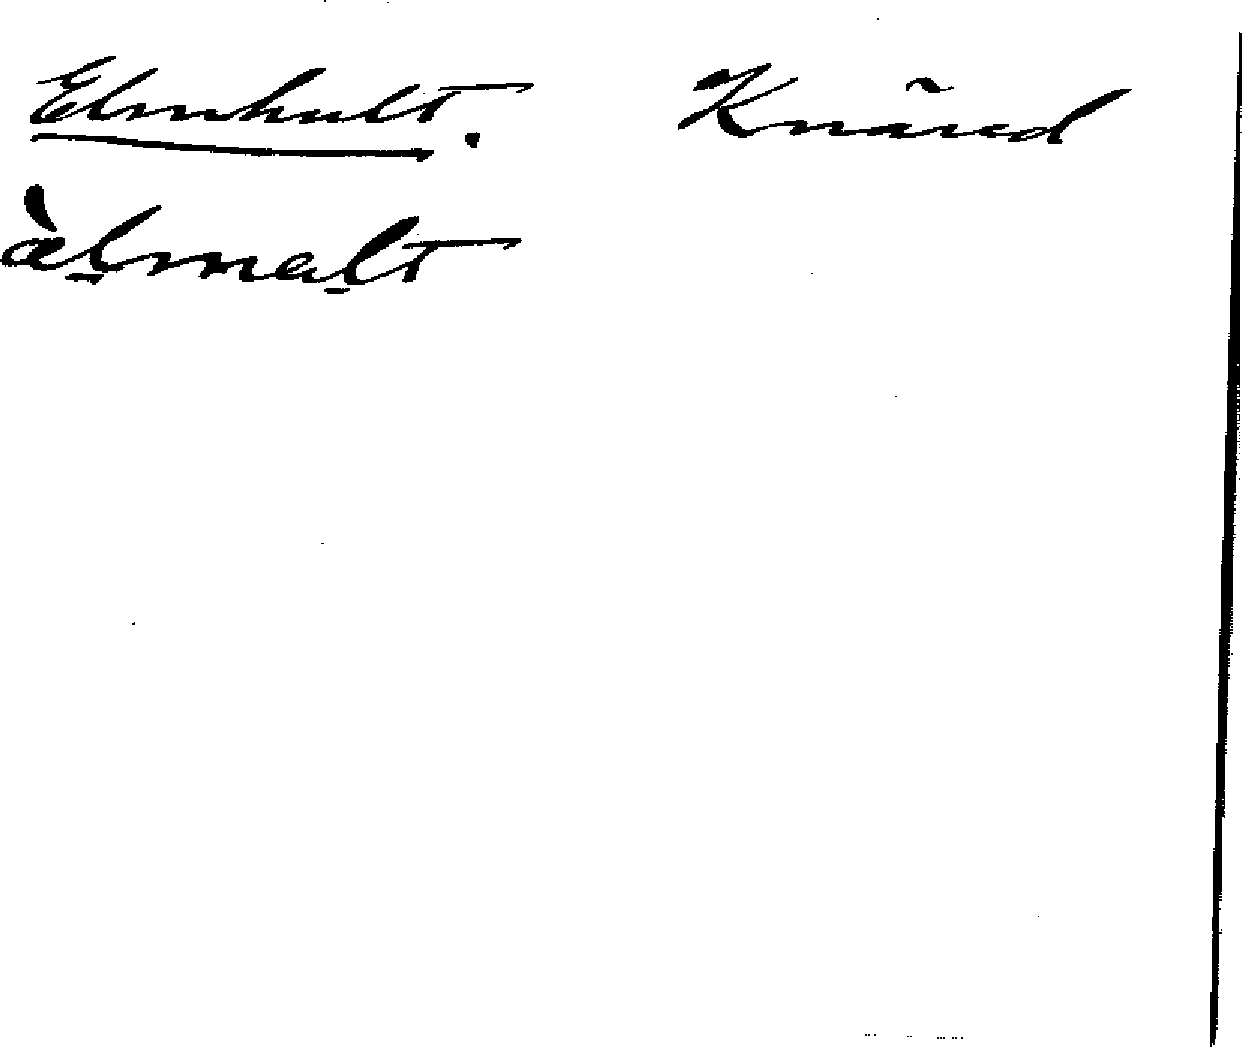 Elmhult. Knäred
àlmalt